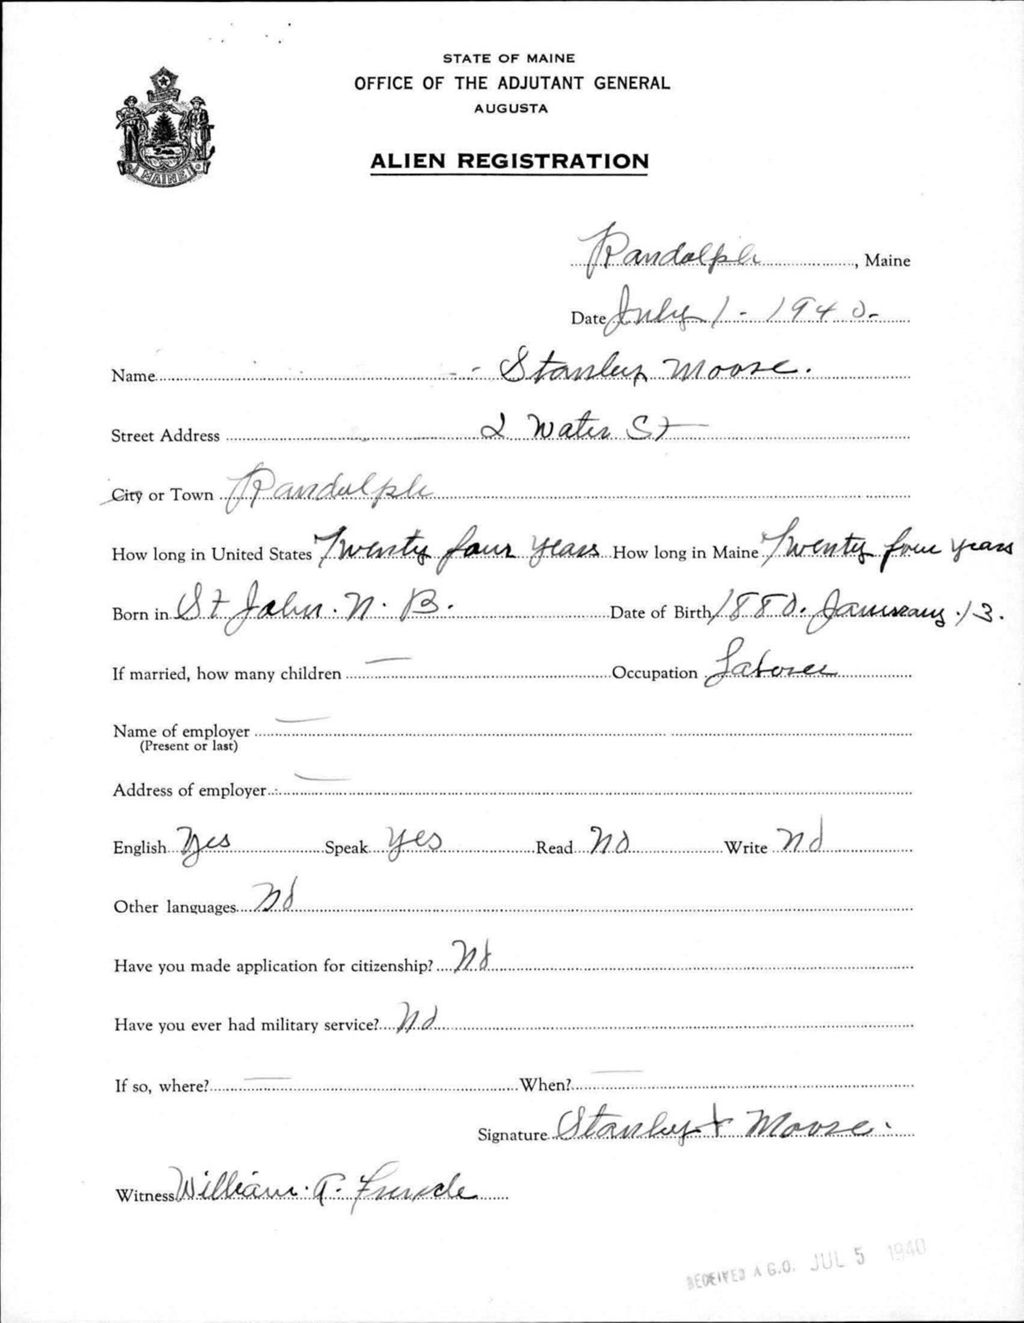 STATE OF MAINE
OFFICE OF THE ADJUTANT GENERAL
AUGUSTA
ALIEN REGISTRATION
MAINE
Randolph, Maine
Date July 1 - 1940-
Name Stanley Moose.
Street Address 2 Water St
City or Town Randolph
How long in United States Twenty four years How long in Maine Twenty four years
Born in St John. N. B. Date of Birth 1880. January. 13.
If married, how many children — Occupation Laborer
Name of employer —
(Present or last)
Address of employer —
English Yes Speak Yes Read No Write No
Other languages No
Have you made application for citizenship? No
Have you ever had military service? No
If so, where? — When? —
Signature Stanley X Moose.
Witness William
RECEIVED A.G.O. JUL 5 1940